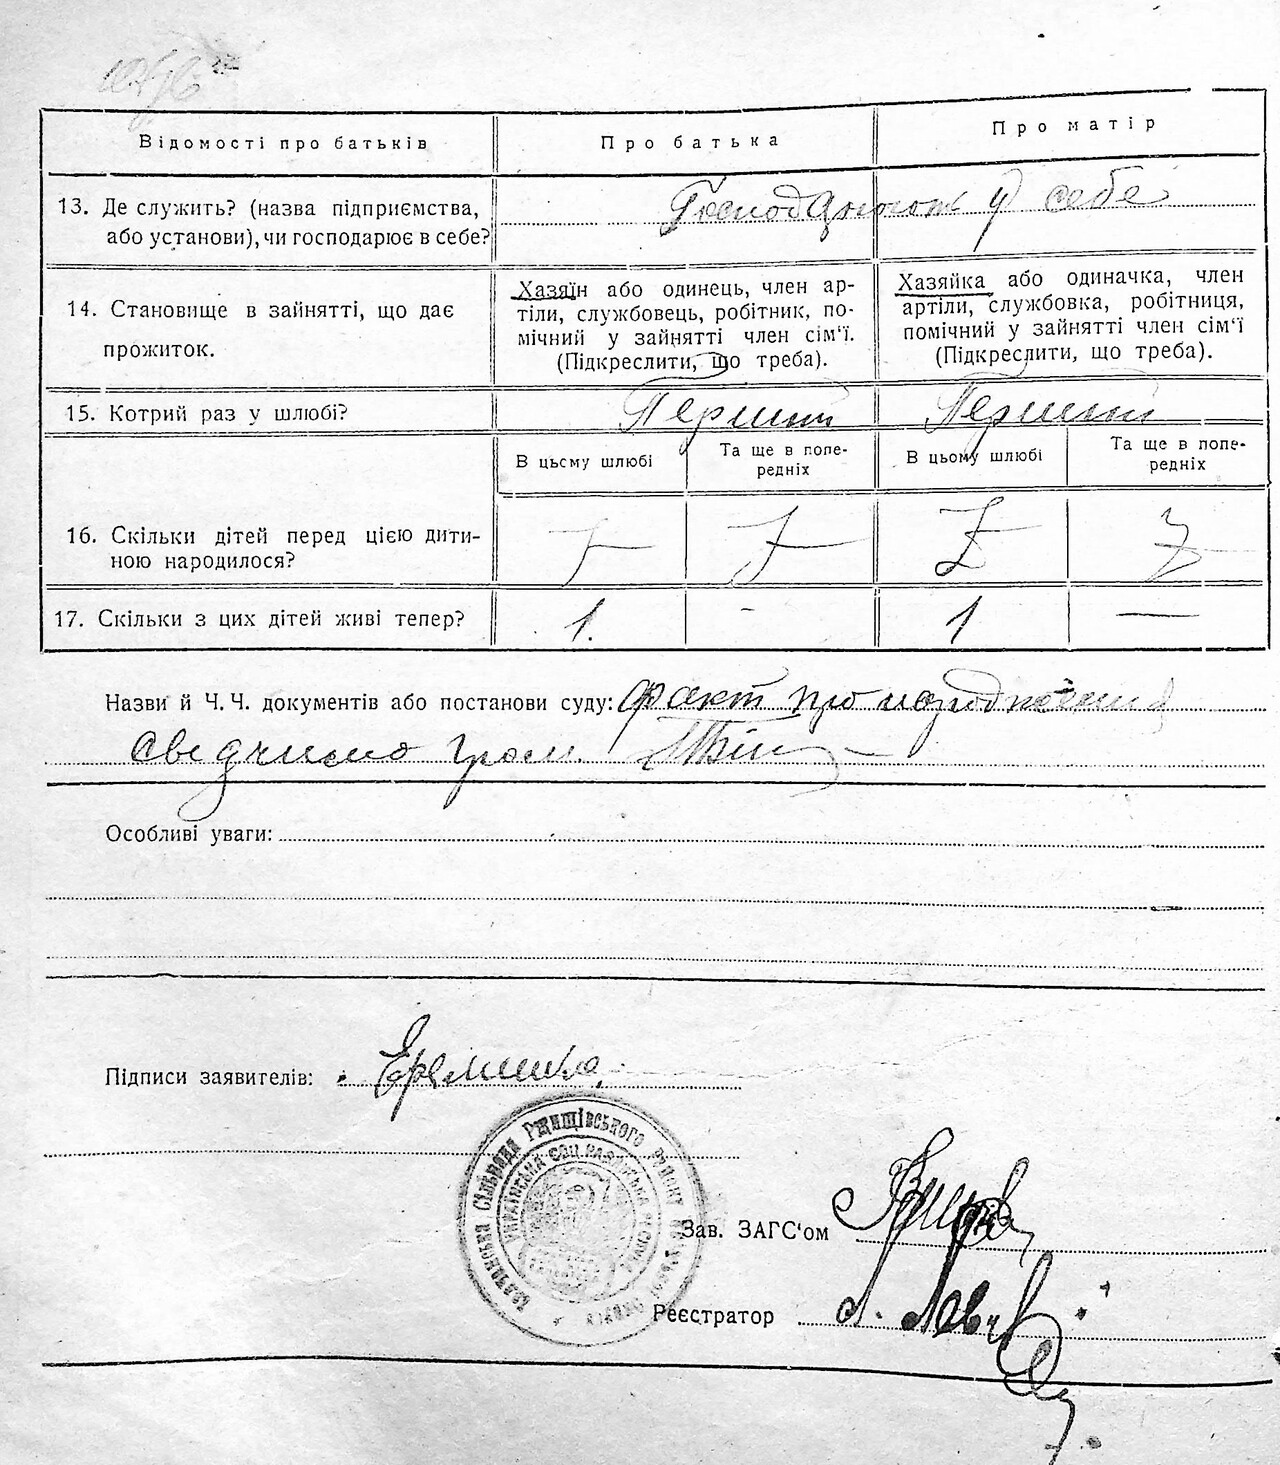 Відомості про батьків
Про батька
Про матір
13. Де служить? (назва підприємства,
або установи), чи господарює в себе?
Господарюють у себе
14. Становище в зайнятті, що дає
прожиток.
Хазяїн або одинець, член ар-
тіли, службовець, робітник, по-
мічний у зайнятті член сім'ї.
(Підкреслити, що треба).
Хазяйка або одиначка, член
артіли, службовка, робітниця,
помічний у зайнятті член сім'ї
(Підкреслити, що треба).
15. Котрий раз у шлюбі?
Перший
Перший
В цьсму шлюбі
Та ще в попе-
редніх
В цьому шлюбі
Та ще в попе-
редніх
16. Скільки дітей перед цією дити-
ною народилося?
17. Скільки з цих дітей живі тепер?
1.
-
1
—
Назви й Ч. Ч. документів або постанови суду: факт про народження
сведчимо гром.
Особливі уваги:
Підписи заявителів:
сільрада Ржищівського району
УКРАЇНСЬКА СОЦ. РАДЯНСЬКА
Зав. ЗАГС'ом
Реєстратор